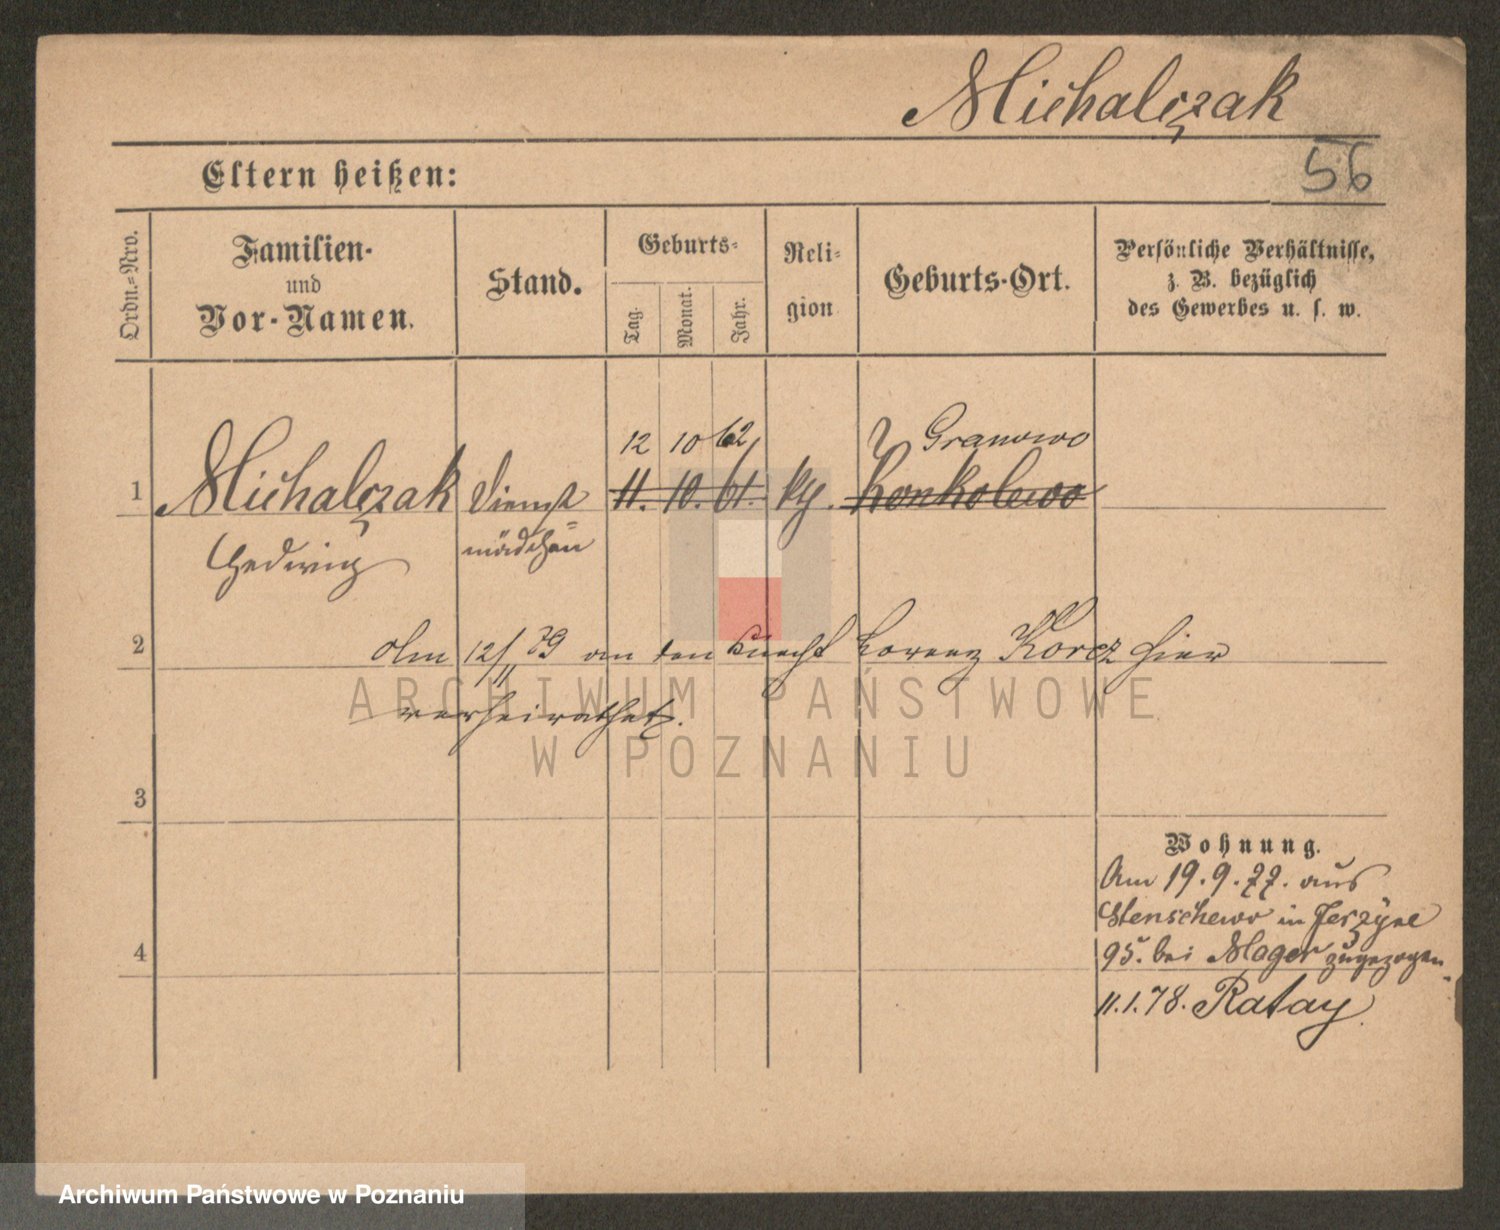 Michalczak
56
Eltern heißen:
Ordn.-Nro.
Familien-
und
Vor-Namen.
Stand.
Geburts-
Tag.
Monat.
Jahr.
Reli-
gion
Geburts-Ort.
Persönliche Verhältnisse,
z. B. bezüglich
des Gewerbes u. s. w.
12 10 62 Granowo
1 Michalczak Dienst 11. 10. 61. kth. Konkolewo
Hedwig mädchen
2 Am 12/11 79 an den Knecht Lorenz Korcz hier
verheirathet.
ARCHIWUM PAŃSTWOWE
W POZNANIU
3
Wohnung.
Am 19.9.77. aus
Stenschewo in Jerzyce
4 95. bei Mager zugezogen
11.1.78. Ratay
Archiwum Państwowe w Poznaniu